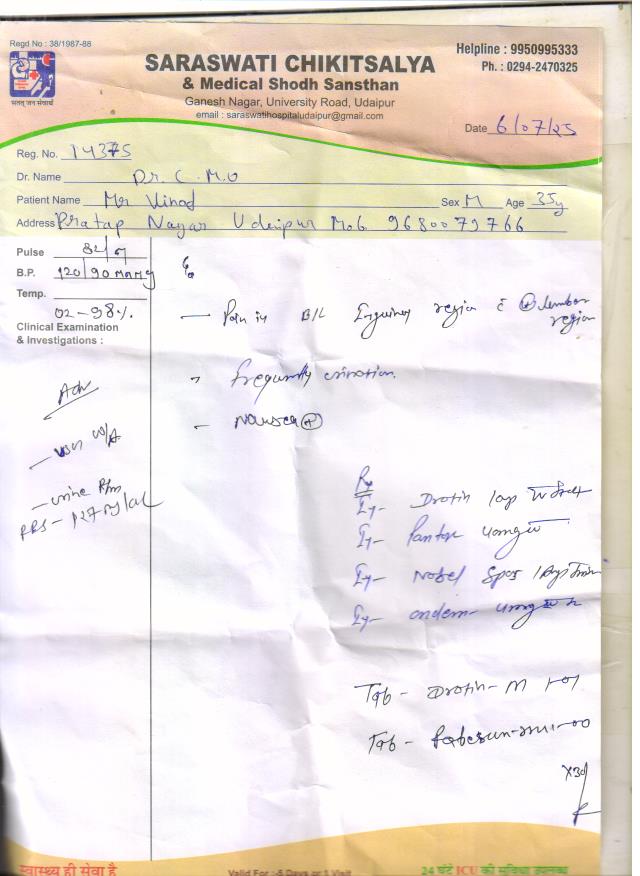 Regd No : 38/1987-88
सतत् जन सेवार्थ
SARASWATI CHIKITSALYA
& Medical Shodh Sansthan
Ganesh Nagar, University Road, Udaipur
email : saraswatihospitaludaipur@gmail.com
Helpline : 9950995333
Ph. : 0294-2470325
Date 6/07/25
Reg. No. 14375
Dr. Name Dr. C.M.O
Patient Name Mr Vinod Sex M Age 35y
Address Pratap Nagar Udaipur Mob 9680079766
Pulse 82/
B.P. 120/90 mmHg
Temp.
02-98%.
Clinical Examination
& Investigations :
— Pain in B/L region c̄ ⊕ lumbar region
Frequently urination.
— Nausea ⊕
Adv
— USG W/A
— urine R/m
RBS - 127 mg/dl
Rx
Inj- Drotin
Inj- Pantop 40mg
Inj- Nobel Spas
Inj- ondem 4mg
Tab - Drotin-M 1-01
Tab -
x3d
स्वास्थ्य ही सेवा है
Valid For :-5 Days or 1 Visit
24 घंटे ICU की सुविधा उपलब्ध